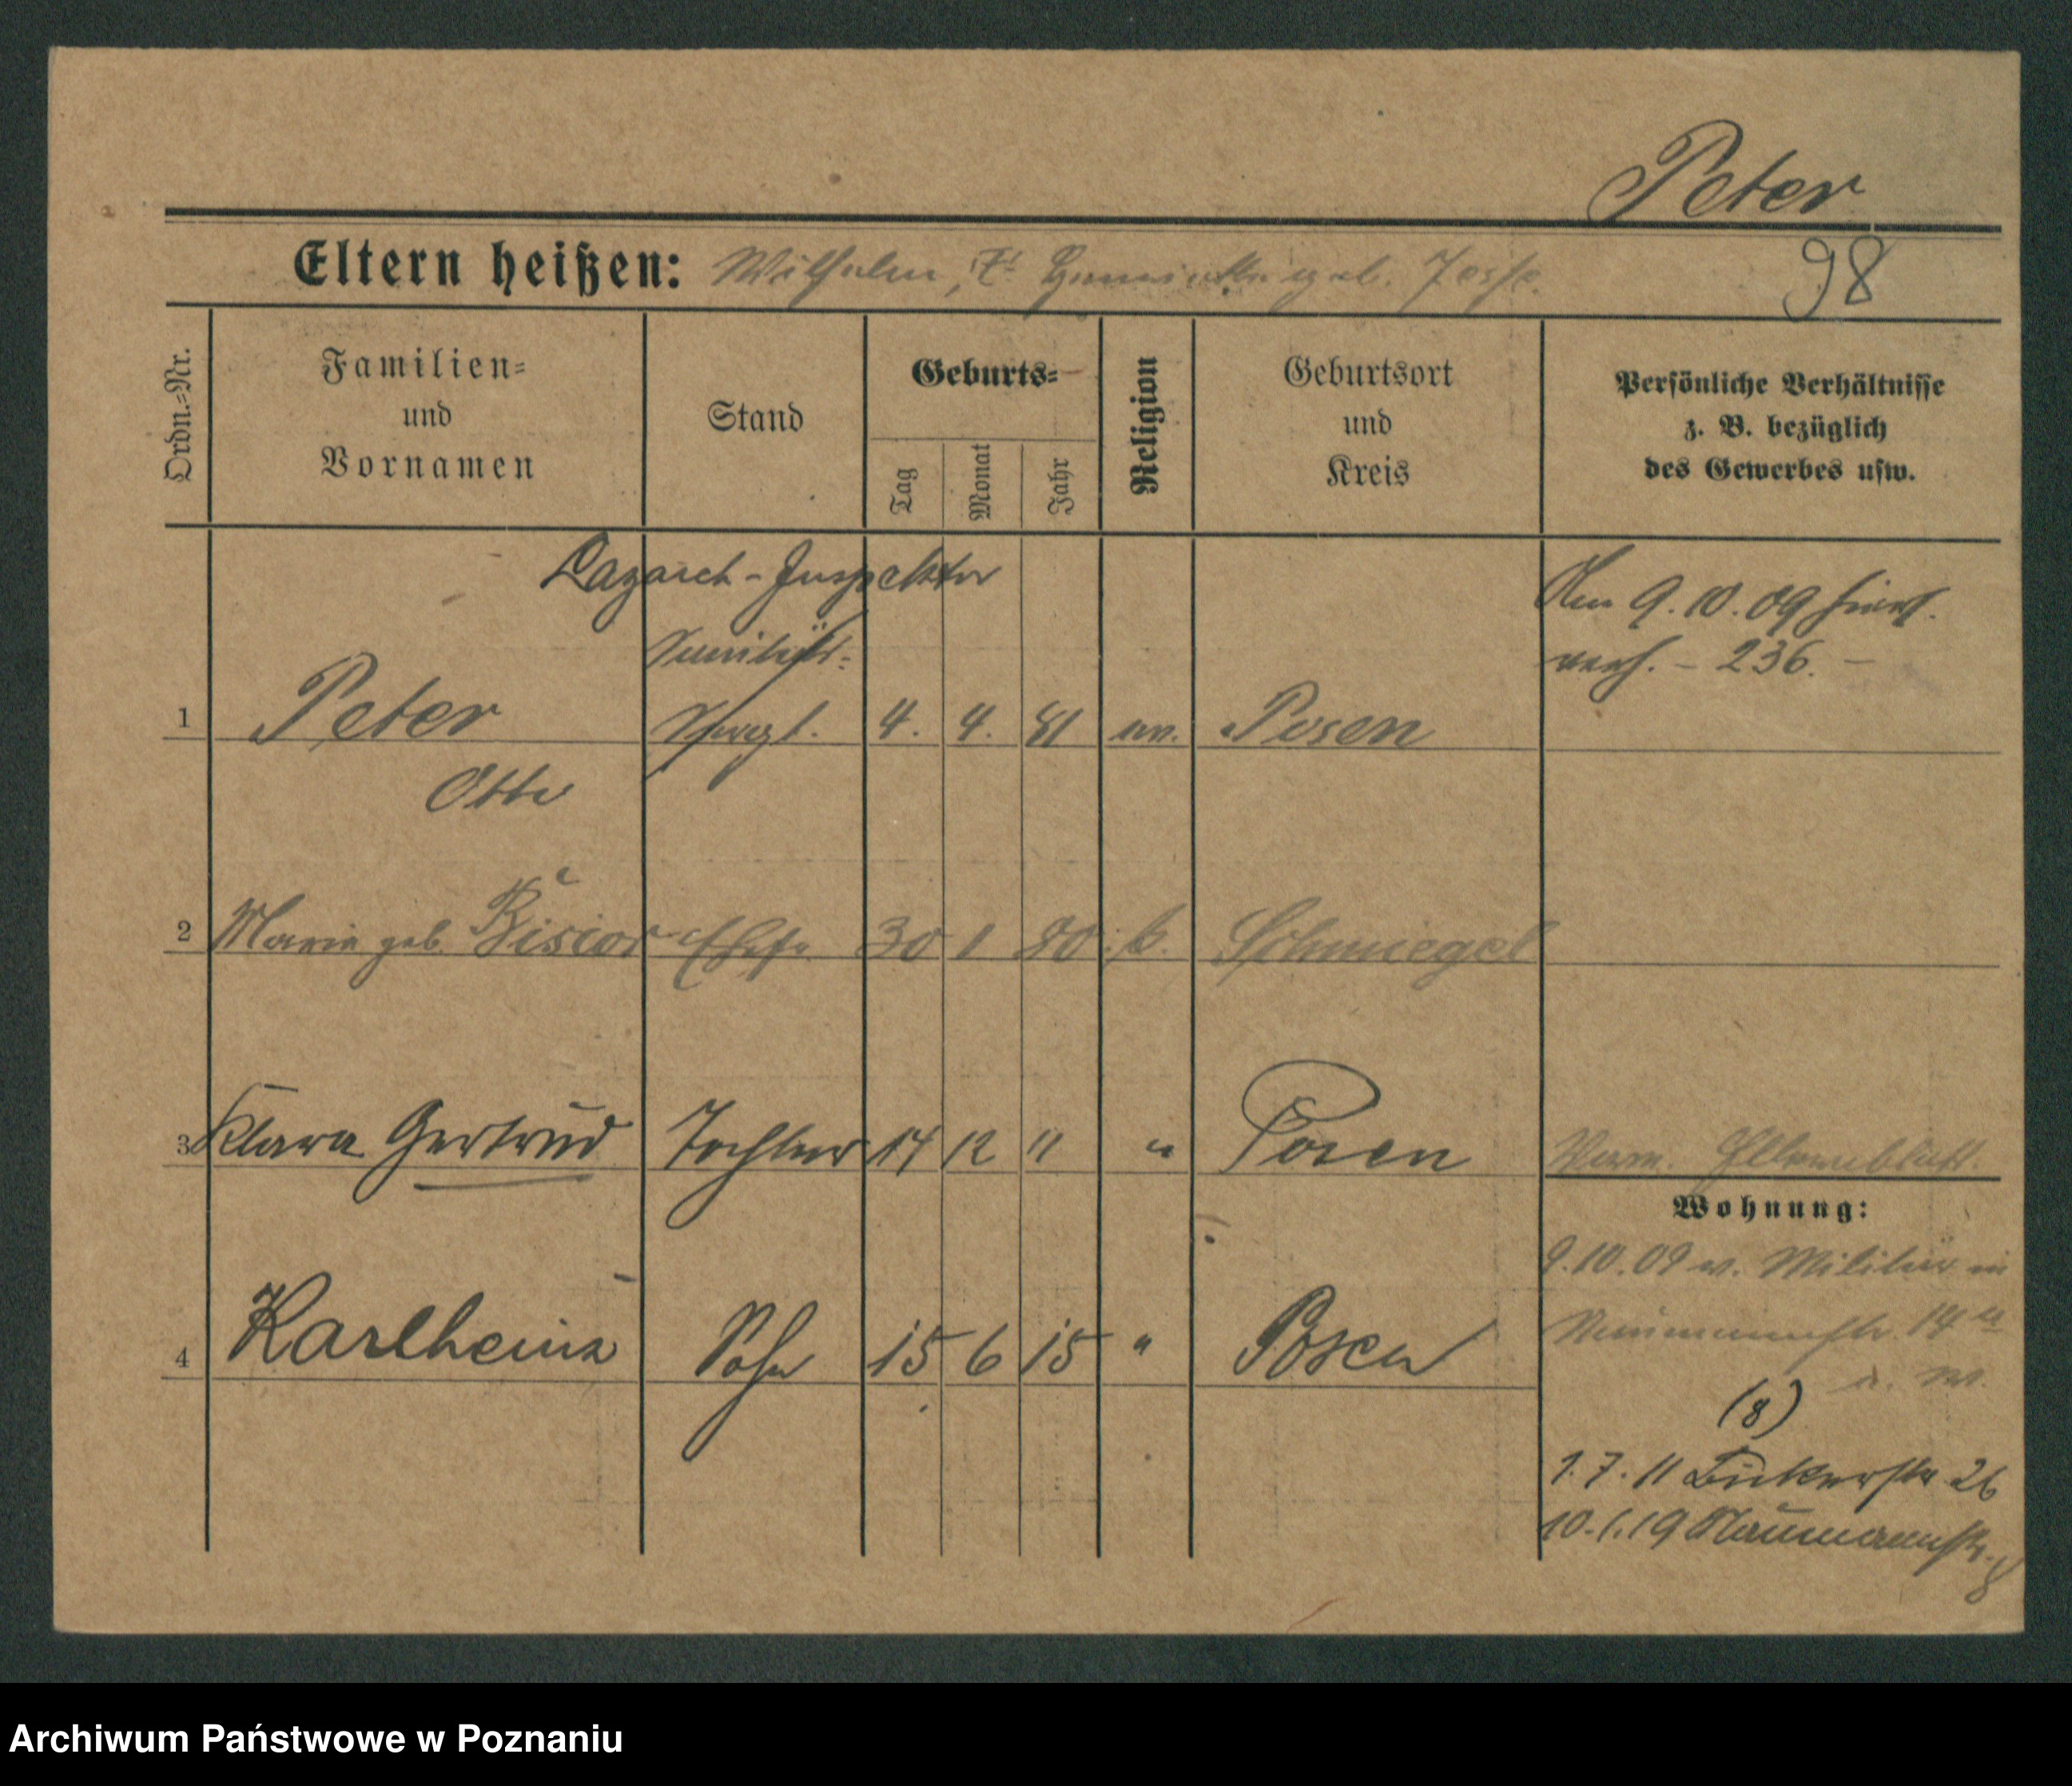 Peter
98
Eltern heißen: Wilhelm, geb. Jesse
Ordn.-Nr.
Familien-
und
Vornamen
Stand
Geburts-
Tag
Monat
Jahr
Religion
Geburtsort
und
Kreis
Persönliche Verhältnisse
z. B. bezüglich
des Gewerbes usw.
Lazarett-Inspektor
Am 9.10.09 hier
verh. - 236. -
1 Peter 4. 4. 81 ev. Posen
Otto
2 Marie geb. Ehefr. 30 1 80 k. Schmiegel
3 Klara Gertrud Tochter 14 12 11 " Posen
Wohnung:
9.10.09 v. Militär in
Naumannstr. 14a
4 Karlheinz Sohn 15 6 15 " Posen
(8)
1.7.11 26
10.1.19 Naumannstr. 8
Archiwum Państwowe w Poznaniu